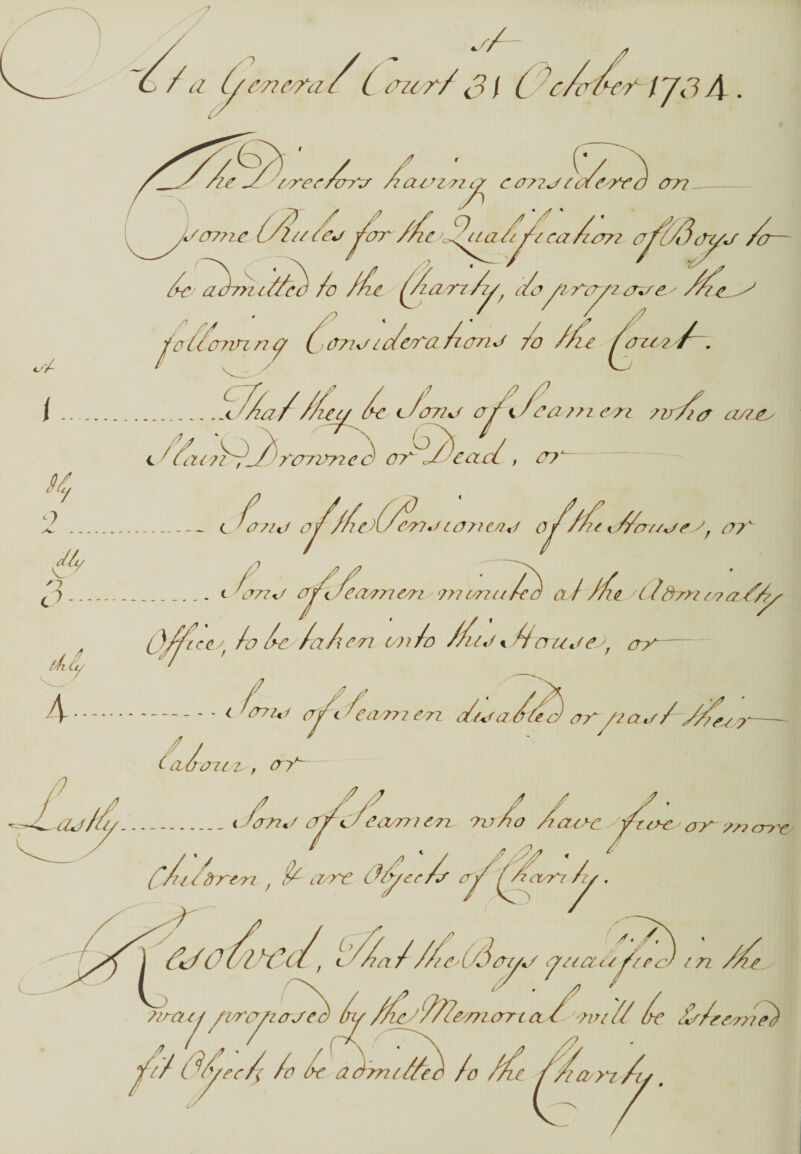 At a General Court 31st October 1734.
The Directors having considered on
some Rules for the Qualification of Boys to
be admitted to the Charity, do propose the
following Considerations to the Court.
1st ... That they be Sons of Seamen who are
Slain, Drowned or Dead, or
2dly ... Sons of the Pensioners of the House, or
3dly ... Sons of Seamen minuted at the Admiralty
Office, to be taken into this House, or
4thly ... Sons of Seamen disabled or past their
labour, or
Lastly ... Sons of Seamen who have five or more
Children, & are Objects of Charity.
Resolved, That the Boys qualified in the
way proposed by the Memorial will be Esteemed
fit Objects to be admitted to the Charity.